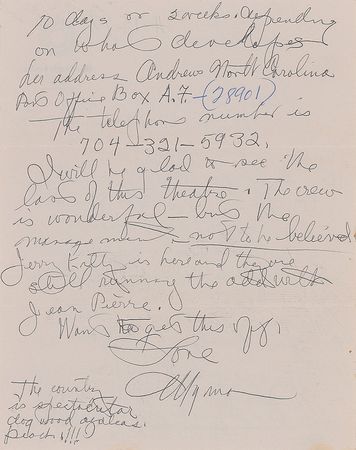 10 days or 2 weeks. Depending
on what developes
her address Andrews North Carolina
Post Office Box A.F. - (28901)
The telephone number is
704-321-5932.
I will be glad to see the
last of this theatre. The crew
is wonderful - but the
management, not to be believed
Jerry is here and they are
still running the add with
Jean Pierre.
Want to get this off.
Love
Myrna
The country
is spectacular
dog wood azaleas.
peach!!!!